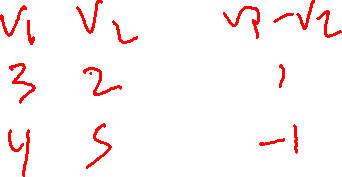 V1 V2 V1-V2
3 2 1
4 5 -1